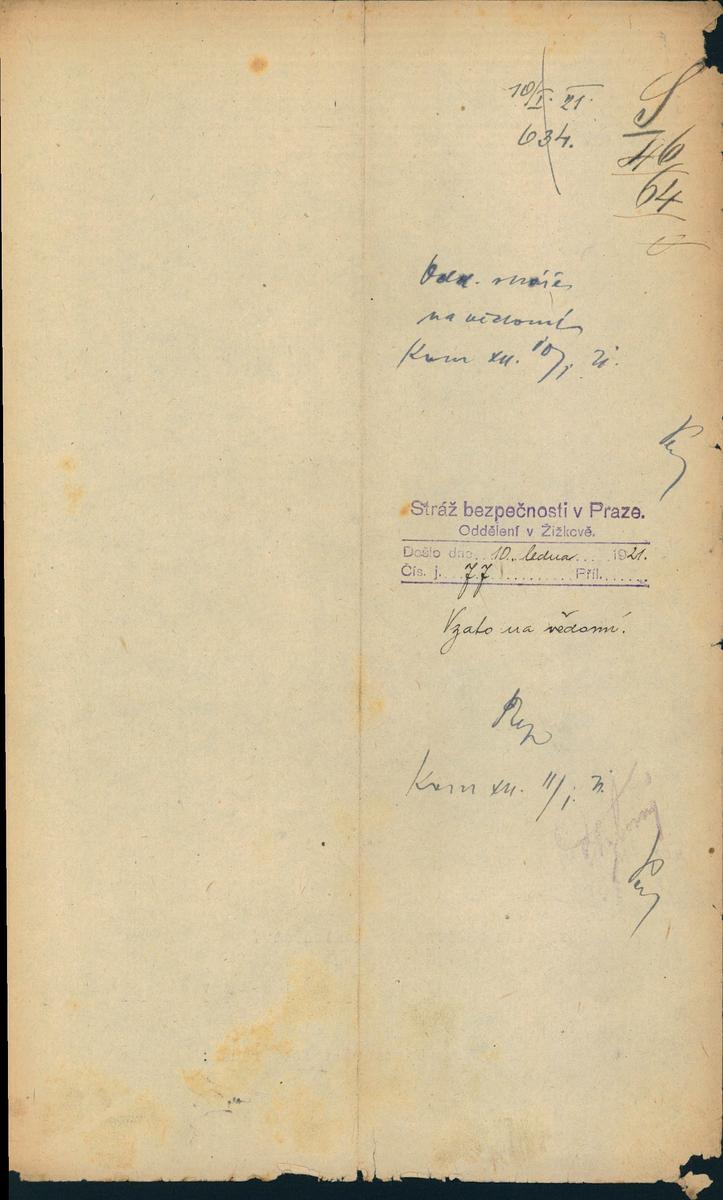 10/I. 21.
634.
S
46
64
Odd. stráže
na vědomí
Kom XII. 10/I. 21.
Stráž bezpečnosti v Praze.
Oddělení v Žižkově.
Došlo dne 10. ledna 1921.
Čís. j. 77 Příl.
Vzato na vědomí.
Kom XII. 11/I. 21.